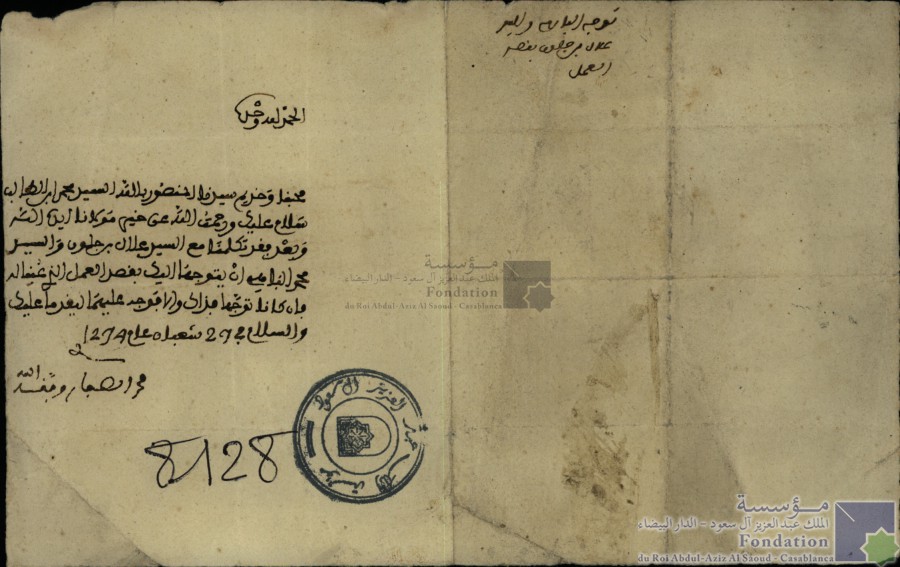 توجه البا والسيد
علال بن جلون بقصد
العمل
الحمد لله وحده
محبنا وخديم سيدنا المنصور بالله السيد محمد ابن الطالب
سلام عليك ورحمت الله عن خير مولانا ايده الله
وبعد فقد تكلمنا مع السيد علال بن جلون والسيد
محمد ان يتوجها اليك بقصد العمل الذي
فان كانا توجها فذاك والا فوجه عليهما ليقدما عليك
والسلام في 27 شعبان عام 1274
محمد الصفار وفقه الله
8128
مؤسسة
الملك عبد العزيز آل سعود - الدار البيضاء
Fondation
du Roi Abdul-Aziz Al Saoud - Casablanca
مؤسسة الملك عبد العزيز آل سعود
مؤسسة
الملك عبد العزيز آل سعود - الدار البيضاء
Fondation
du Roi Abdul-Aziz Al Saoud - Casablanca